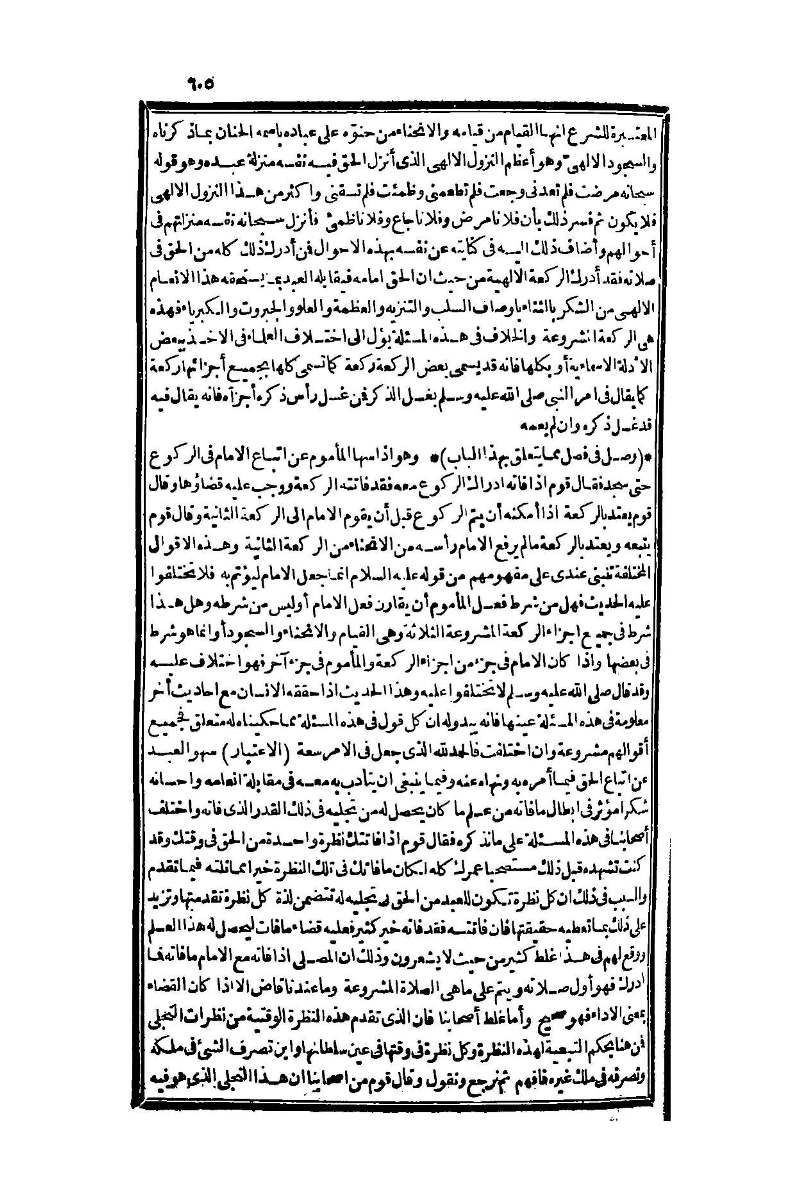 ٦٠٥
المعتبرة للشرع انها القيام من قيامه والانحناء من حنوّه على عباده باسمه الحنان بماذ كرناه
والسجود الالهى وهو أعظم النزول الالهى الذى أنزل الحق فيه نفسه منزلة عبده وهو قوله
سبحانه مرضت فلم تعدنى وجعت فلم تطعمنى وظمئت فلم تسقنى واكثر من هذا النزول الالهى
فلا يكون ثم فسر ذلك بأن فلانا مرض وفلانا جاع وفلانا ظمئ فأنزل سبحانه نفسه منزلتهم فى
أحوالهم وأضاف ذلك اليه فى كنايته عن نفسه بهذه الاحوال فمن أدرك ذلك كله من الحق فى
صلاته فقد أدرك الركعة الالهية من حيث ان الحق امامه فيقابله العبد بما يستحقه هذا الانعام
الالهى من الشكر بالثناء باوصاف السلب والتنزيه والعظمة والعلو والجبروت والكبرياء فهذه
هى الركعة المشروعة والخلاف فى هذه المسئلة يؤل الى اختلاف العلماء فى الاخذ ببعض
الادلة الاسمائية أو بكلها فانه قد يسمى بعض الركعة ركعة كما تسمى كلها بجميع أجزائها ركعة
كما يقال فى امر النبى صلى الله عليه وسلم بغسل الذكر فمن غسل رأس ذكره أجزأه فانه يقال فيه
قد غسل ذكره وان لم يعمه
*(وصل فى فصل مما يتعلق بهذا الباب)* وهو اذا سها المأموم عن اتباع الامام فى الركوع
حتى سجد فقال قوم اذا فاته ادراك الركوع معه فقد فاتته الركعة ووجب عليه قضاؤها وقال
قوم يعتد بالركعة اذا أمكنه أن يتم الركوع قبل أن يقوم الامام الى الركعة الثانية وقال قوم
يتبعه ويعتد بالركعة مالم يرفع الامام رأسه من الانحناء من الركعة الثانية وهذه الاقوال
المختلفة تنبنى عندى على مفهومهم من قوله عليه السلام انما جعل الامام ليؤتم به فلا تختلفوا
عليه الحديث فهل من شرط فعل المأموم أن يقارن فعل الامام أوليس من شرطه وهل هذا
شرط فى جميع اجزاء الركعة المشروعة الثلاثة وهى القيام والانحناء والسجود أوانما هو شرط
فى بعضها واذا كان الامام فى جزء من اجزاء الركعة والمأموم فى جزء آخر فهو اختلاف عليه
وقد قال صلى الله عليه وسلم لا تختلفوا عليه وهذا الحديث اذا حققه الانسان مع احاديث أخر
معلومة فى هذه المسئلة عينها فانه يبدوله ان كل قول فى هذه المسئلة مما حكيناه له متعلق فجميع
أقوالهم مشروعة وان اختلفت فالحمدلله الذى جعل فى الامر سعة (الاعتبار) سهو العبد
عن اتباع الحق فيما أمره به ونهاه عنه وفيما ينبغى ان يتأدب به معه فى مقابلة انعامه واحسانه
شكرا مؤثر فى ابطال مافاته من علم ما كان يحصل له من تجليه فى ذلك القدر الذى فاته واختلف
أصحابنا فى هذه المسئلة على مانذكره فقال قوم اذا فاتتك نظرة واحدة من الحق فى وقتك وقد
كنت تشهده قبل ذلك مستصحبا عمرك كله لكان مافاتك فى تلك النظرة خيرا مما نلته فيما تقدم
والسبب فى ذلك ان كل نظرة تكون للعبد من الحق فى تجليه له تتضمن لذة كل نظرة تقدمتها وتزيد
على ذلك بما تعطيه حقيقتها فان فاتته فقد فاته خير كثير فعليه قضاء مافات ليحصل له هذا العلم
ووقع لهم فى هذا غلط كثير من حيث لا يشعرون وذلك ان المصلى اذا فاته مع الامام مافاته فما
ادرك فهو أول صلاته ويتم على ماهى الصلاة المشروعة وما عندنا قاض الا اذا كان القضاء
بمعنى الاداء فهو صحيح وأما غلط أصحابنا فان الذى تقدم هذه النظرة الوقتية من نظرات التجلى
فمن هنا بحكم التبعية لهذه النظرة وكل نظرة فى وقتها فى عين سلطانها واين تصرف الشئ فى ملكه
وتصرفه فى ملك غيره فافهم ثم نرجع ونقول وقال قوم من اصحابنا ان هذا التجلى الذى هو فيه